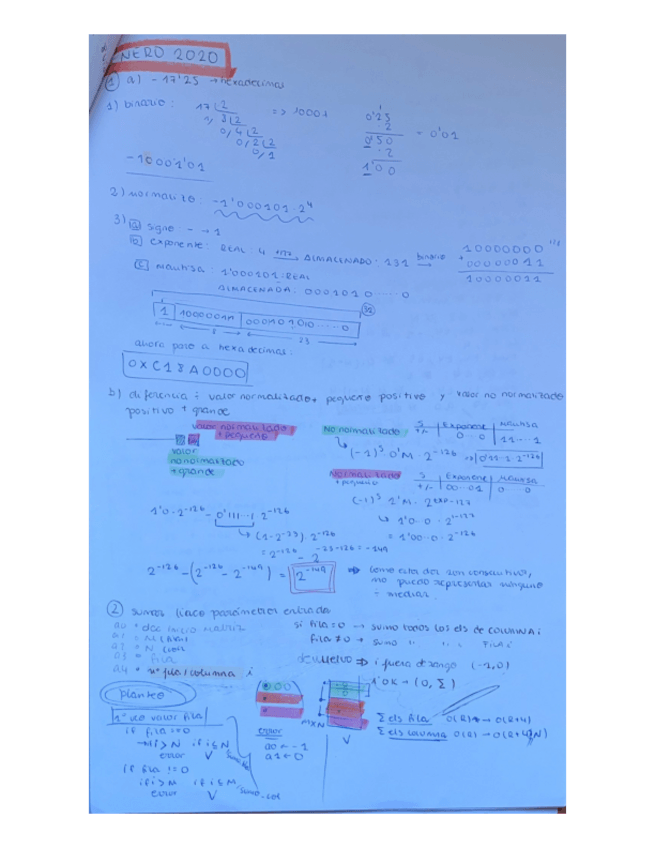 ENERO 2020
① a) - 17'25 → hexadecimal
1) binario: 17 | 2 => 10001 0'25
= 0'01
- 10001'01
2) normalizo: -1'000101 · 2⁴
3) a signo: - → 1
b exponente: REAL: 4 +127 → ALMACENADO: 131 binario → 10000000
+ 00000011
10000011
c Mantisa: 1'000101: REAL
ALMACENADA: 0001010 0
1 | 10000011 | 0001010 0
8 23
ahora paso a hexadecimal:
0xC18A0000
b) diferencia ÷ valor normalizado + pequeño positivo y valor no normalizado
positivo + grande
valor normalizado
+ pequeño
valor
no normalizado
+ grande
No normalizado
S | Exponente | Mantisa
+/- | 0 ·· 0 | 11 ··· 1
(-1)ˢ 0'M · 2⁻¹²⁶ → 0'11··1 · 2⁻¹²⁶
Normalizado
+ pequeño
S | Exponente | Mantisa
+/- | 00 ·· 01 | 0 0
(-1)ˢ 1'M · 2^(exp-127)
1'0 · 2⁻¹²⁶ - 0'111···1 2⁻¹²⁶
(1-2⁻²³) 2⁻¹²⁶
= 1'00··0 · 2⁻¹²⁶
2⁻¹²⁶ - (2⁻¹²⁶ - 2⁻¹⁴⁹) = 2⁻¹⁴⁹ ⇒ como estos dos son consecutivos,
no puedo representar ninguno
÷ medias.
② sumas línea parámetros entrada
a0 = dcc inicio matriz
a1 = M (filas)
a2 = N (col)
a3 = fila
a4 = nº fila/columna i
si fila=0 → sumo todos los els de COLUMNA i
fila≠0 → sumo " " " FILA i
devuelvo ⇒ i fuera de rango (-1,0)
OK → (0, Σ)
Planteo
1º veo valor fila
if fila=0
i>N if i≤N
error V
if fila !=0
if i>M if i≤M
error V
error
a0 ← -1
a1 ← 0
MxN
V
Σ els fila O(R) → O(R+4)
Σ els columna O(R) → O(R+4N)